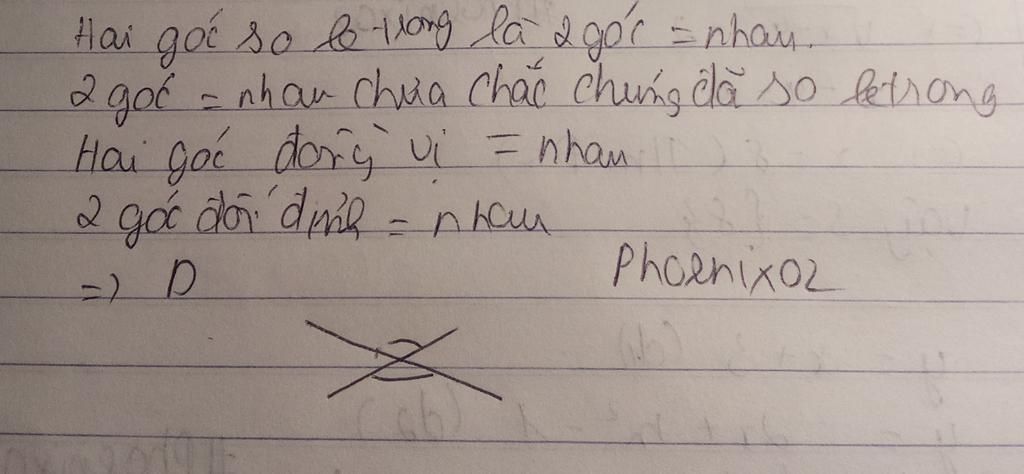 Hai góc so le trong là 2 góc = nhau.
2 góc = nhau chưa chắc chúng đã so le trong
Hai góc đồng vị = nhau
2 góc đối đỉnh = nhau
=> D
Phoenix02